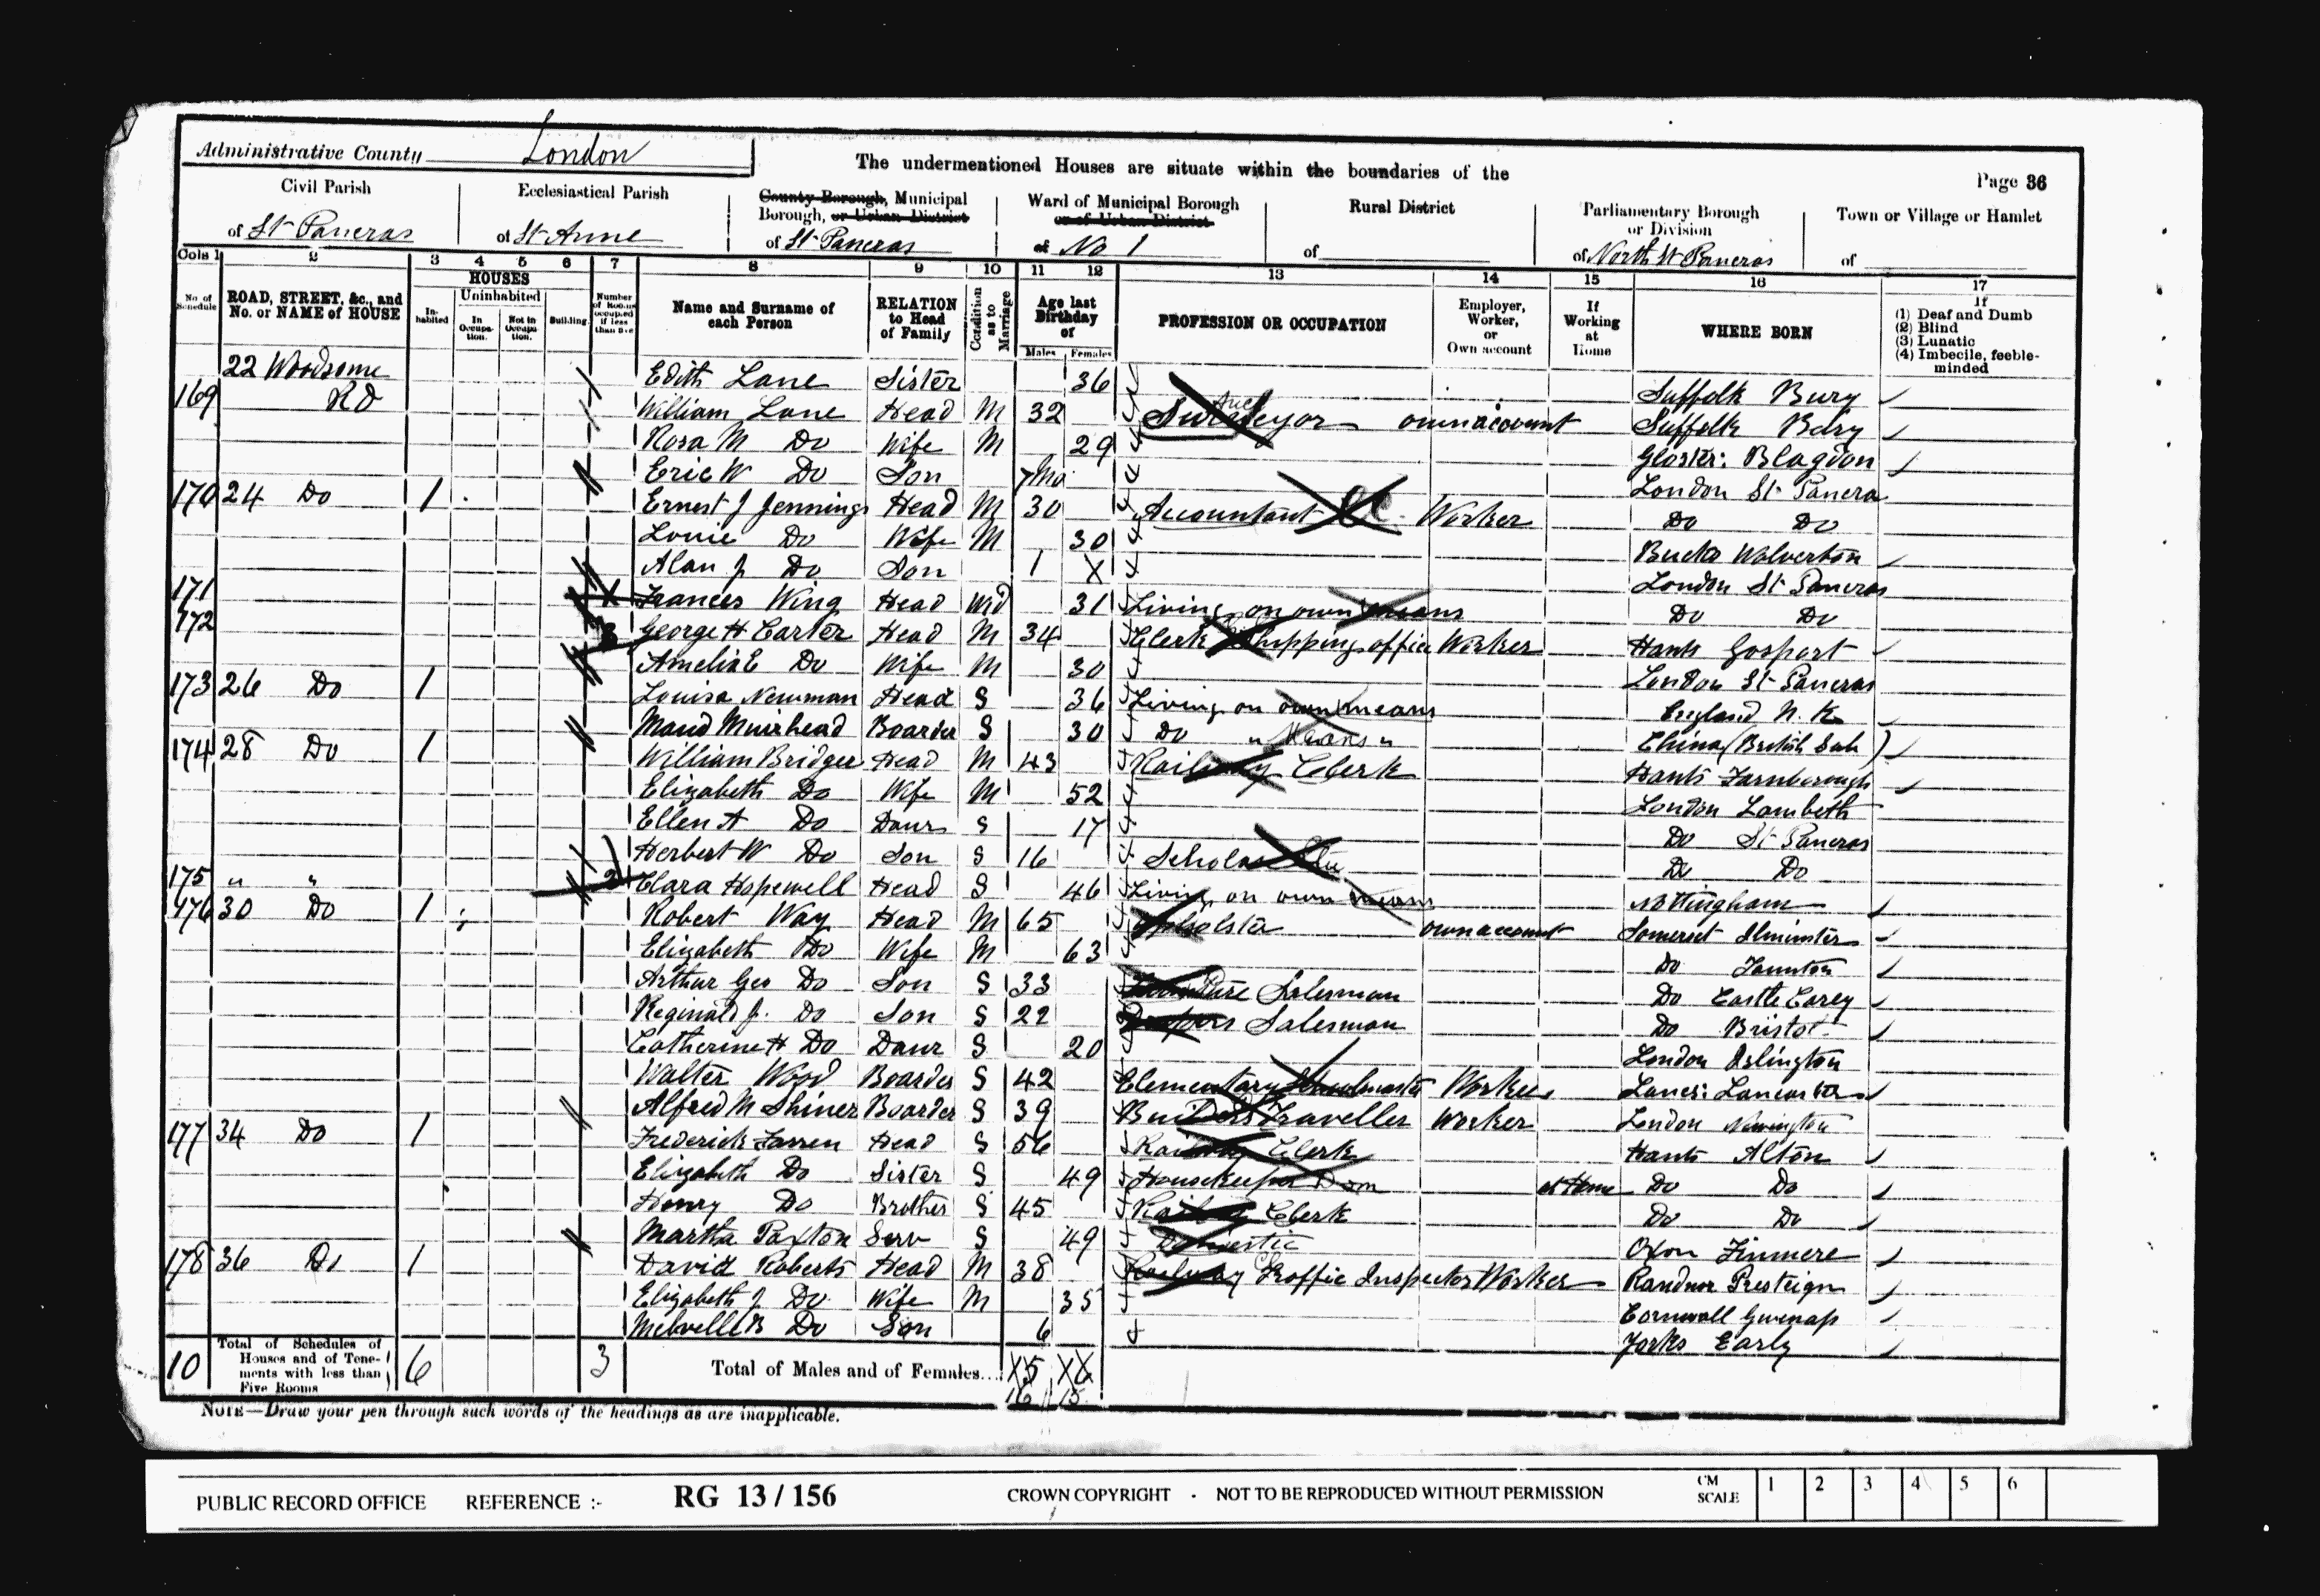 Administrative County London
The undermentioned Houses are situate within the boundaries of the
Page 36
Civil Parish of St Pancras
Ecclesiastical Parish of St Anne
County Borough, Municipal Borough, or Urban District of St Pancras
Ward of Municipal Borough or of Urban District of No 1
Rural District of
Parliamentary Borough or Division of North St Pancras
Town or Village or Hamlet of
Cols 1 2 3 4 5 6 7 8 9 10 11 12 13 14 15 16 17
No. of Schedule
ROAD, STREET, &c., and No. or NAME of HOUSE
HOUSES
In-habited
Uninhabited
In Occupa-tion.
Not in Occupa-tion.
Building
Number of Rooms occupied if less than five
Name and Surname of each Person
RELATION to Head of Family
Condition as to Marriage
Age last Birthday of
Males Females
PROFESSION OR OCCUPATION
Employer, Worker, or Own account
If Working at Home
WHERE BORN
If
(1) Deaf and Dumb
(2) Blind
(3) Lunatic
(4) Imbecile, feeble-minded
22 Woodsome Edith Lane Sister 36 Suffolk Bury
169 Rd William Lane Head M 32 Surveyor own account Suffolk Bury
Rosa M Do Wife M 29 Gloster: Blagdon
Eric W Do Son 7 Mo London St Pancra
170 24 Do 1 Ernest J Jennings Head M 30 Accountant Worker Do Do
Louie Do Wife M 30 Bucks Wolverton
Alan J Do Son 1 X London St Pancras
171 Frances Wing Head Wid 31 Living on own means Do Do
172 3 George H Carter Head M 34 Clerk Shipping office Worker Hants Gosport
Amelia E Do Wife M 30 London St Pancras
173 26 Do 1 Louisa Newman Head S 36 Living on own means England N. K.
Maud Muirhead Boarder S 30 Do " Means " China (British Sub)
174 28 Do 1 William Bridger Head M 43 Railway Clerk Hants Farnborough
Elizabeth Do Wife M 52 London Lambeth
Ellen A Do Daur S 17 Do St Pancras
Herbert W Do Son S 16 Scholar Do Do
175 " " 2 Clara Hopewell Head S 46 Living on own means Nottingham
176 30 Do 1 Robert Way Head M 65 Upholster own account Somerset Ilminster
Elizabeth Do Wife M 63 Do Taunton
Arthur Geo Do Son S 33 Furniture Salesman Do Castle Carey
Reginald J. Do Son S 22 Drapers Salesman Do Bristol
Catherine H Do Daur S 20 London Islington
Walter Wood Boarder S 42 Elementary Schoolmaster Worker Lancs: Lancaster
Alfred M Shiner Boarder S 39 Builders Traveller Worker London Newington
177 34 Do 1 Frederick Farren Head S 56 Railway Clerk Hants Alton
Elizabeth Do Sister S 49 Housekeeper Dom at Home Do Do
Henry Do Brother S 45 Railway Clerk Do Do
Martha Paxton Serv S 49 Domestic Oxon Finmere
178 36 Do 1 David Roberts Head M 38 Railway Traffic Inspector Worker Randnor Presteign
Elizabeth J Do Wife M 35 Cornwall Gwenap
Melville B Do Son 6 Yorks Early
10 Total of Schedules of Houses and of Tene-ments with less than Five Rooms 6 3 Total of Males and of Females... 15 16
16 15
NOTE—Draw your pen through such words of the headings as are inapplicable.
PUBLIC RECORD OFFICE REFERENCE :- RG 13 / 156 CROWN COPYRIGHT - NOT TO BE REPRODUCED WITHOUT PERMISSION CM SCALE 1 2 3 4 5 6